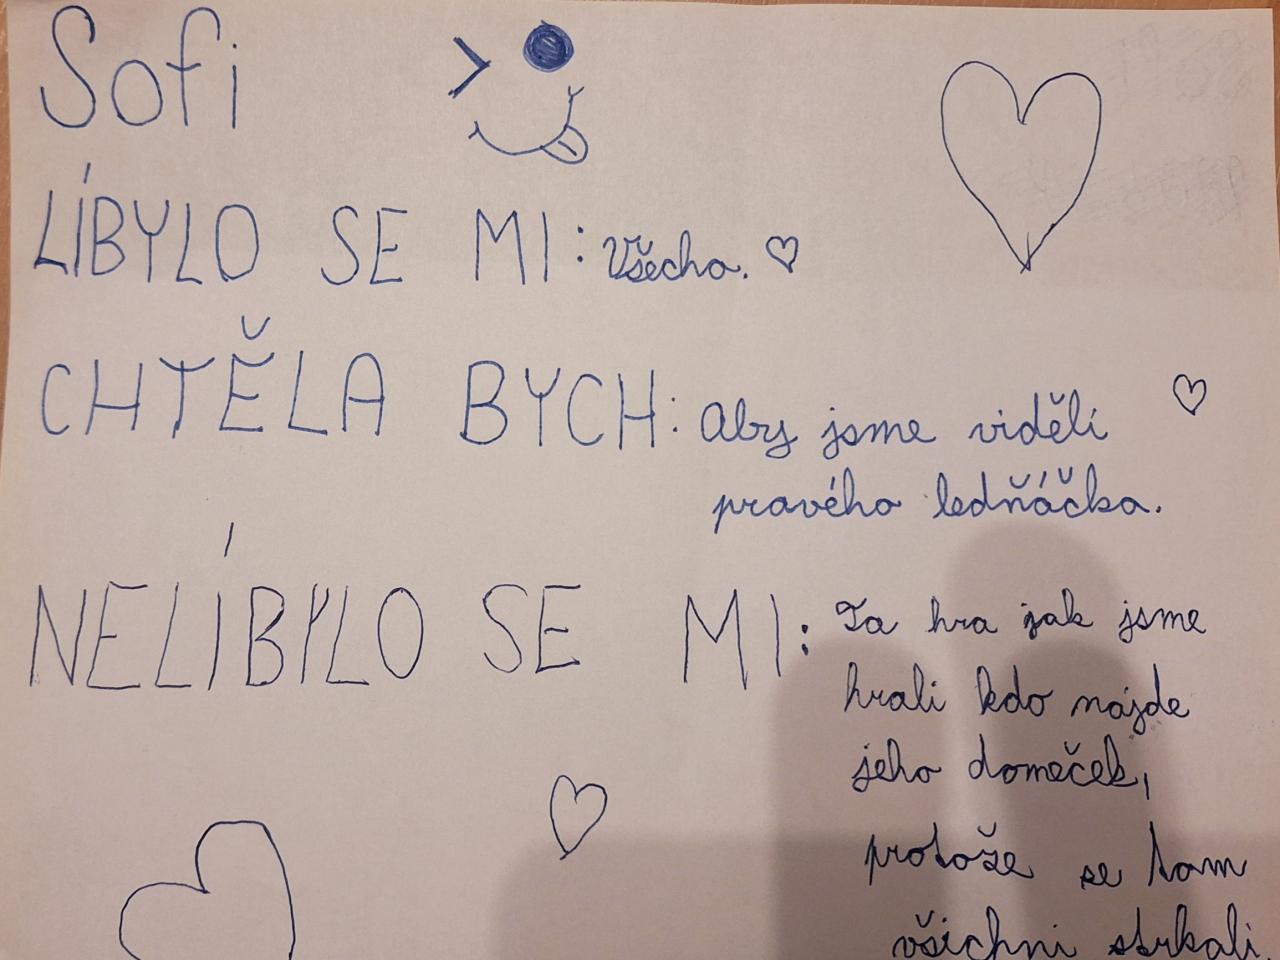 Sofi
LÍBYLO SE MI: Všecho.
CHTĚLA BYCH: Aby jsme viděli
pravého ledňáčka.
NELÍBYLO SE MI: Ta hra jak jsme
hrali kdo najde
jeho domeček,
protože se tam
všichni strkali.